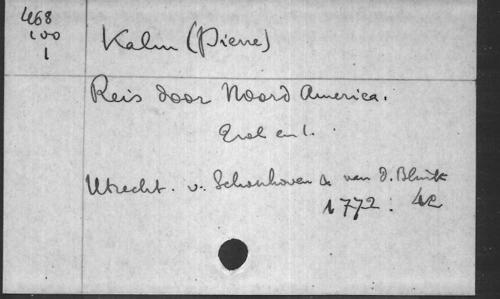 468
100
1
Kalm (Pierre)
Reis door Noord America.
Utrecht. v. Schonhoven & van d. Blink
1772. 4º